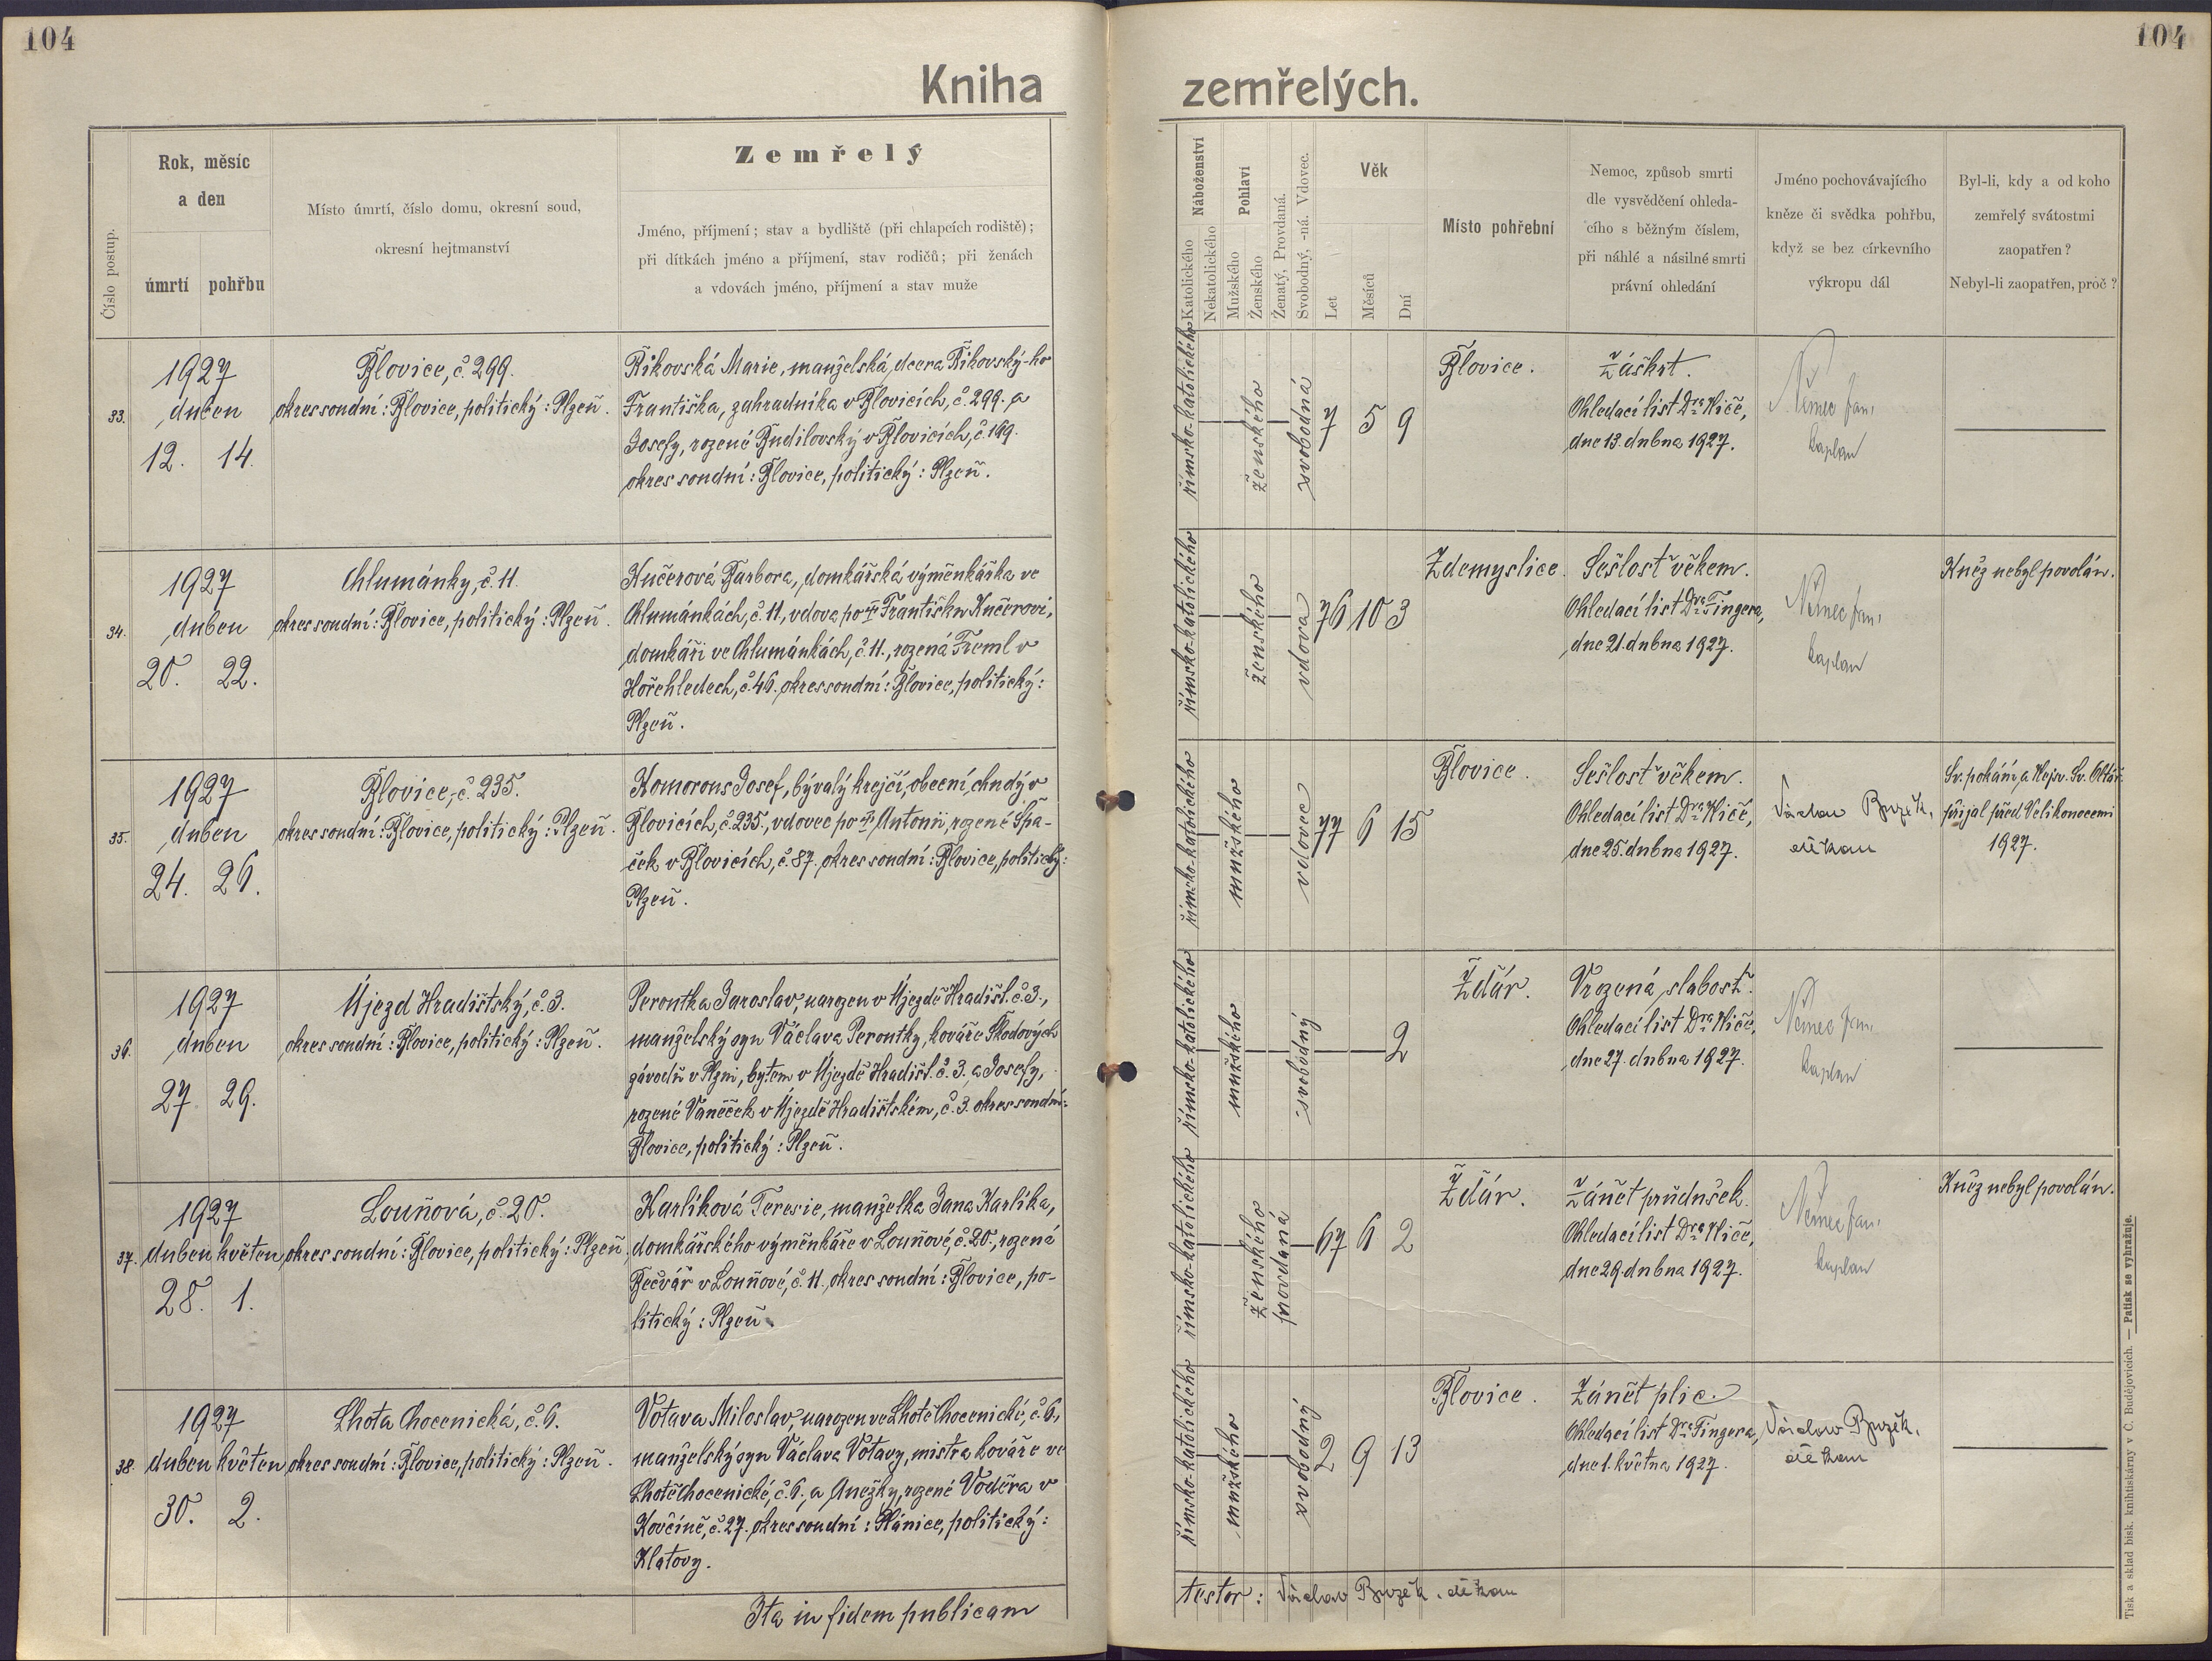 104
104
Kniha
zemřelých.
Číslo postup.
Rok, měsíc
a den
úmrtí pohřbu
Místo úmrtí, číslo domu, okresní soud,
okresní hejtmanství
Zemřelý
Jméno, příjmení; stav a bydliště (při chlapcích rodiště);
při dítkách jméno a příjmení, stav rodičů; při ženách
a vdovách jméno, příjmení a stav muže
Náboženství
Katolického
Nekatolického
Pohlaví
Mužského
Ženského
Ženatý, Provdaná.
Svobodný, -ná. Vdovec.
Věk
Let
Měsíců
Dní
Místo pohřební
Nemoc, způsob smrti
dle vysvědčení ohleda-
cího s běžným číslem,
při náhlé a násilné smrti
právní ohledání
Jméno pochovávajícího
kněze či svědka pohřbu,
když se bez církevního
výkropu dál
Byl-li, kdy a od koho
zemřelý svátostmi
zaopatřen?
Nebyl-li zaopatřen, proč?
33.
1927
duben
12. 14.
Blovice, č. 299.
okres soudní: Blovice, politický: Plzeň.
Řikovská Marie, manželská dcera Řikovský-ho
Františka, zahradníka v Blovicích, č. 299. a
Josefy, rozené Budilovský v Blovicích, č. 169.
okres soudní: Blovice, politický: Plzeň.
římsko-katolického
ženského
svobodná
7 5 9
Blovice.
Záškrt.
Ohledací list Dra Hiče,
dne 13. dubna 1927.
Němec Jan,
kaplan
34.
1927
duben
20. 22.
Chlumánky, č. 11.
okres soudní: Blovice, politický: Plzeň.
Kučerová Barbora, domkářská výměnkářka ve
Chlumánkách, č. 11, vdova po † Františku Kučerovi,
domkáři ve Chlumánkách, č. 11., rozená Treml v
Hořehledech, č. 46. okres soudní: Blovice, politický:
Plzeň.
římsko-katolického
ženského
vdova
76 10 3
Zdemyslice.
Sešlost věkem.
Ohledací list Dra Fingera,
dne 21. dubna 1927.
Němec Jan,
kaplan
Kněz nebyl povolán.
35.
1927
duben
24. 26.
Blovice, č. 235.
okres soudní: Blovice, politický: Plzeň.
Komorous Josef, bývalý krejčí, obecní chudý v
Blovicích, č. 235., vdovec po † Antonii, rozené Špa-
ček v Blovicích, č. 87. okres soudní: Blovice, politický:
Plzeň.
římsko-katolického
mužského
vdovec
77 6 15
Blovice.
Sešlost věkem.
Ohledací list Dra Hiče,
dne 25. dubna 1927.
Václav Buzěk,
děkan
Sv. pokání a Nejsv. Sv. Oltář.
přijal před Velikonocemi
1927.
36.
1927
duben
27. 29.
Újezd Hradištský, č. 3.
okres soudní: Blovice, politický: Plzeň.
Peroutka Jaroslav, narozen v Újezdě Hradišt. č. 3.,
manželský syn Václava Peroutky, kováře Škodových
závodů v Plzni, bytem v Újezdě Hradišt. č. 3. a Josefy,
rozené Vaněček v Újezdě Hradištském, č. 3. okres soudní:
Blovice, politický: Plzeň.
římsko-katolického
mužského
svobodný
2
Ždár.
Vrozená slabost.
Ohledací list Dra Hiče,
dne 27. dubna 1927.
Němec Jan,
kaplan
37.
1927
duben květen
28. 1.
Louňová, č. 20.
okres soudní: Blovice, politický: Plzeň.
Karlíková Teresie, manželka Jana Karlíka,
domkářského výměnkáře v Louňové, č. 20., rozená
Bečvář v Louňové, č. 11. okres soudní: Blovice, po-
litický: Plzeň.
římsko-katolického
ženského
provdaná
67 6 2
Ždár.
Zánět průdušek.
Ohledací list Dra Hiče,
dne 29. dubna 1927.
Němec Jan,
kaplan
Kněz nebyl povolán.
38.
1927
duben květen
30. 2.
Lhota Chocenická, č. 6.
okres soudní: Blovice, politický: Plzeň.
Votava Miloslav, narozen ve Lhotě Chocenické, č. 6,
manželský syn Václava Votavy, mistra kováře ve
Lhotě Chocenické, č. 6. a Anežky, rozené Voděra v
Kovčíně, č. 27. okres soudní: Plánice, politický:
Klatovy.
římsko-katolického
mužského
svobodný
2 9 13
Blovice.
Zánět plic.
Ohledací list Dra Fingera,
dne 1. května 1927.
Václav Buzěk,
děkan
Ita in fidem publicam
testor: Václav Buzěk, děkan
Tisk a sklad bisk. knihtiskárny v Č. Budějovicích. — Patisk se vyhražuje.